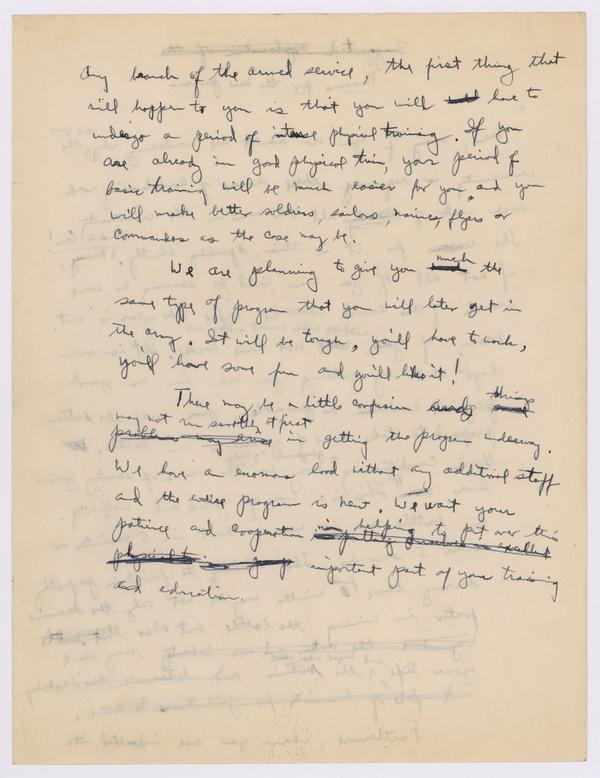 any branch of the armed service, the first thing that
will happen to you is that you will have to
undergo a period of intense physical training. If you
are already in good physical trim, your period of
basic training will be much easier for you and you
will make better soldiers, sailors, marines, flyers or
commandos as the case may be.
We are planning to give you much the
same type of program that you will later get in
the army. It will be tough, you'll have to work,
you'll have some fun and you'll like it!
There may be a little confusion things
may not run smoothly at first
problems may arise in getting the program underway.
We have an enormous load without any additional staff
and the entire program is new. We want your
patience and cooperation in helping to put over this
important part of your training
and education.